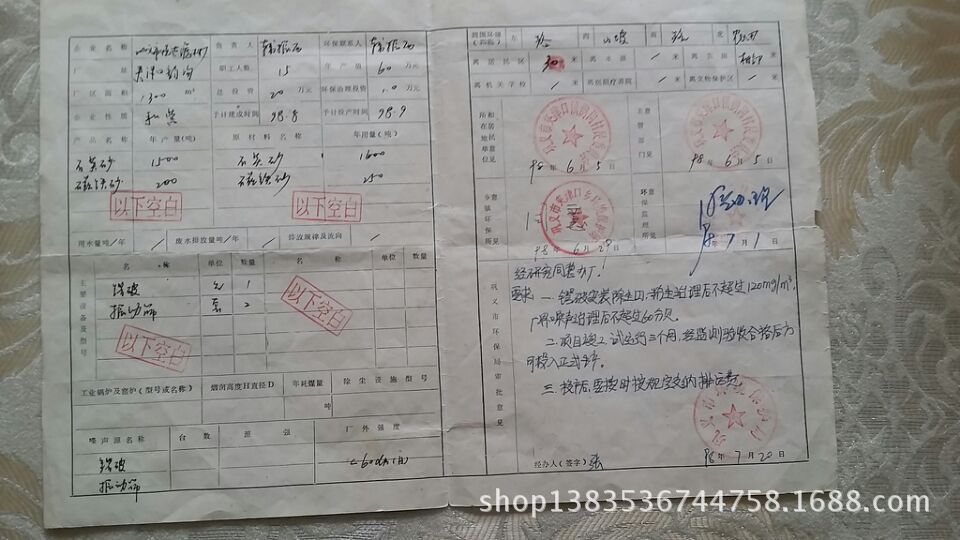 企业名称 负责人 环保联系人
厂址 职工人数 15 年产值 60 万元
厂区面积 1300 m² 总投资 20 万元 环保治理投资 1.0 万元
企业性质 私营 予计建成时间 98.8 予计投产时间 98.9
产品名称 年产量(吨) 原材料名称 年用量(吨)
石英砂 1500 石英砂 1600
磁铁砂 200 磁铁砂 250
以下空白 以下空白
用水量吨/年 / 废水排放量吨/年 / 排放规律及流向 /
主要设备及型号
名称 单位 数量 名称 单位 数量
锷破 台 1
振动筛 套 2
以下空白
以下空白
工业锅炉及窑炉(型号或名称) 烟囱高度H直径D 年耗煤量 除尘设施型号
吨
噪声源名称 台数 源强 厂外强度
锷破
振动筛
周围环境(距离) 东 路 西 山坡 南 路 北
离居民区 300 米 离水源 / 米 离农田 米
离机关学校 / 米 离医院疗养院 / 米 离文物保护区 / 米
所在居民单位 和地毕意见
主管部门意见
98年6月5日
98年6月5日
乡镇环保所意见
环保监理所意见
98年6月29日
7月1日
巩义市环保局审批意见
经研究同意办厂!
要求 一、锷破安装除尘口,粉尘治理后不超过120mg/m³,
厂界噪声治理后不超过60分贝
二、项目竣工试运行三个月,经监测验收合格后方
可投入正式生产
三、投产后,要按时按规定交纳排污费
经办人(签字) 张
98年7月20日
shop1383536744758.1688.com